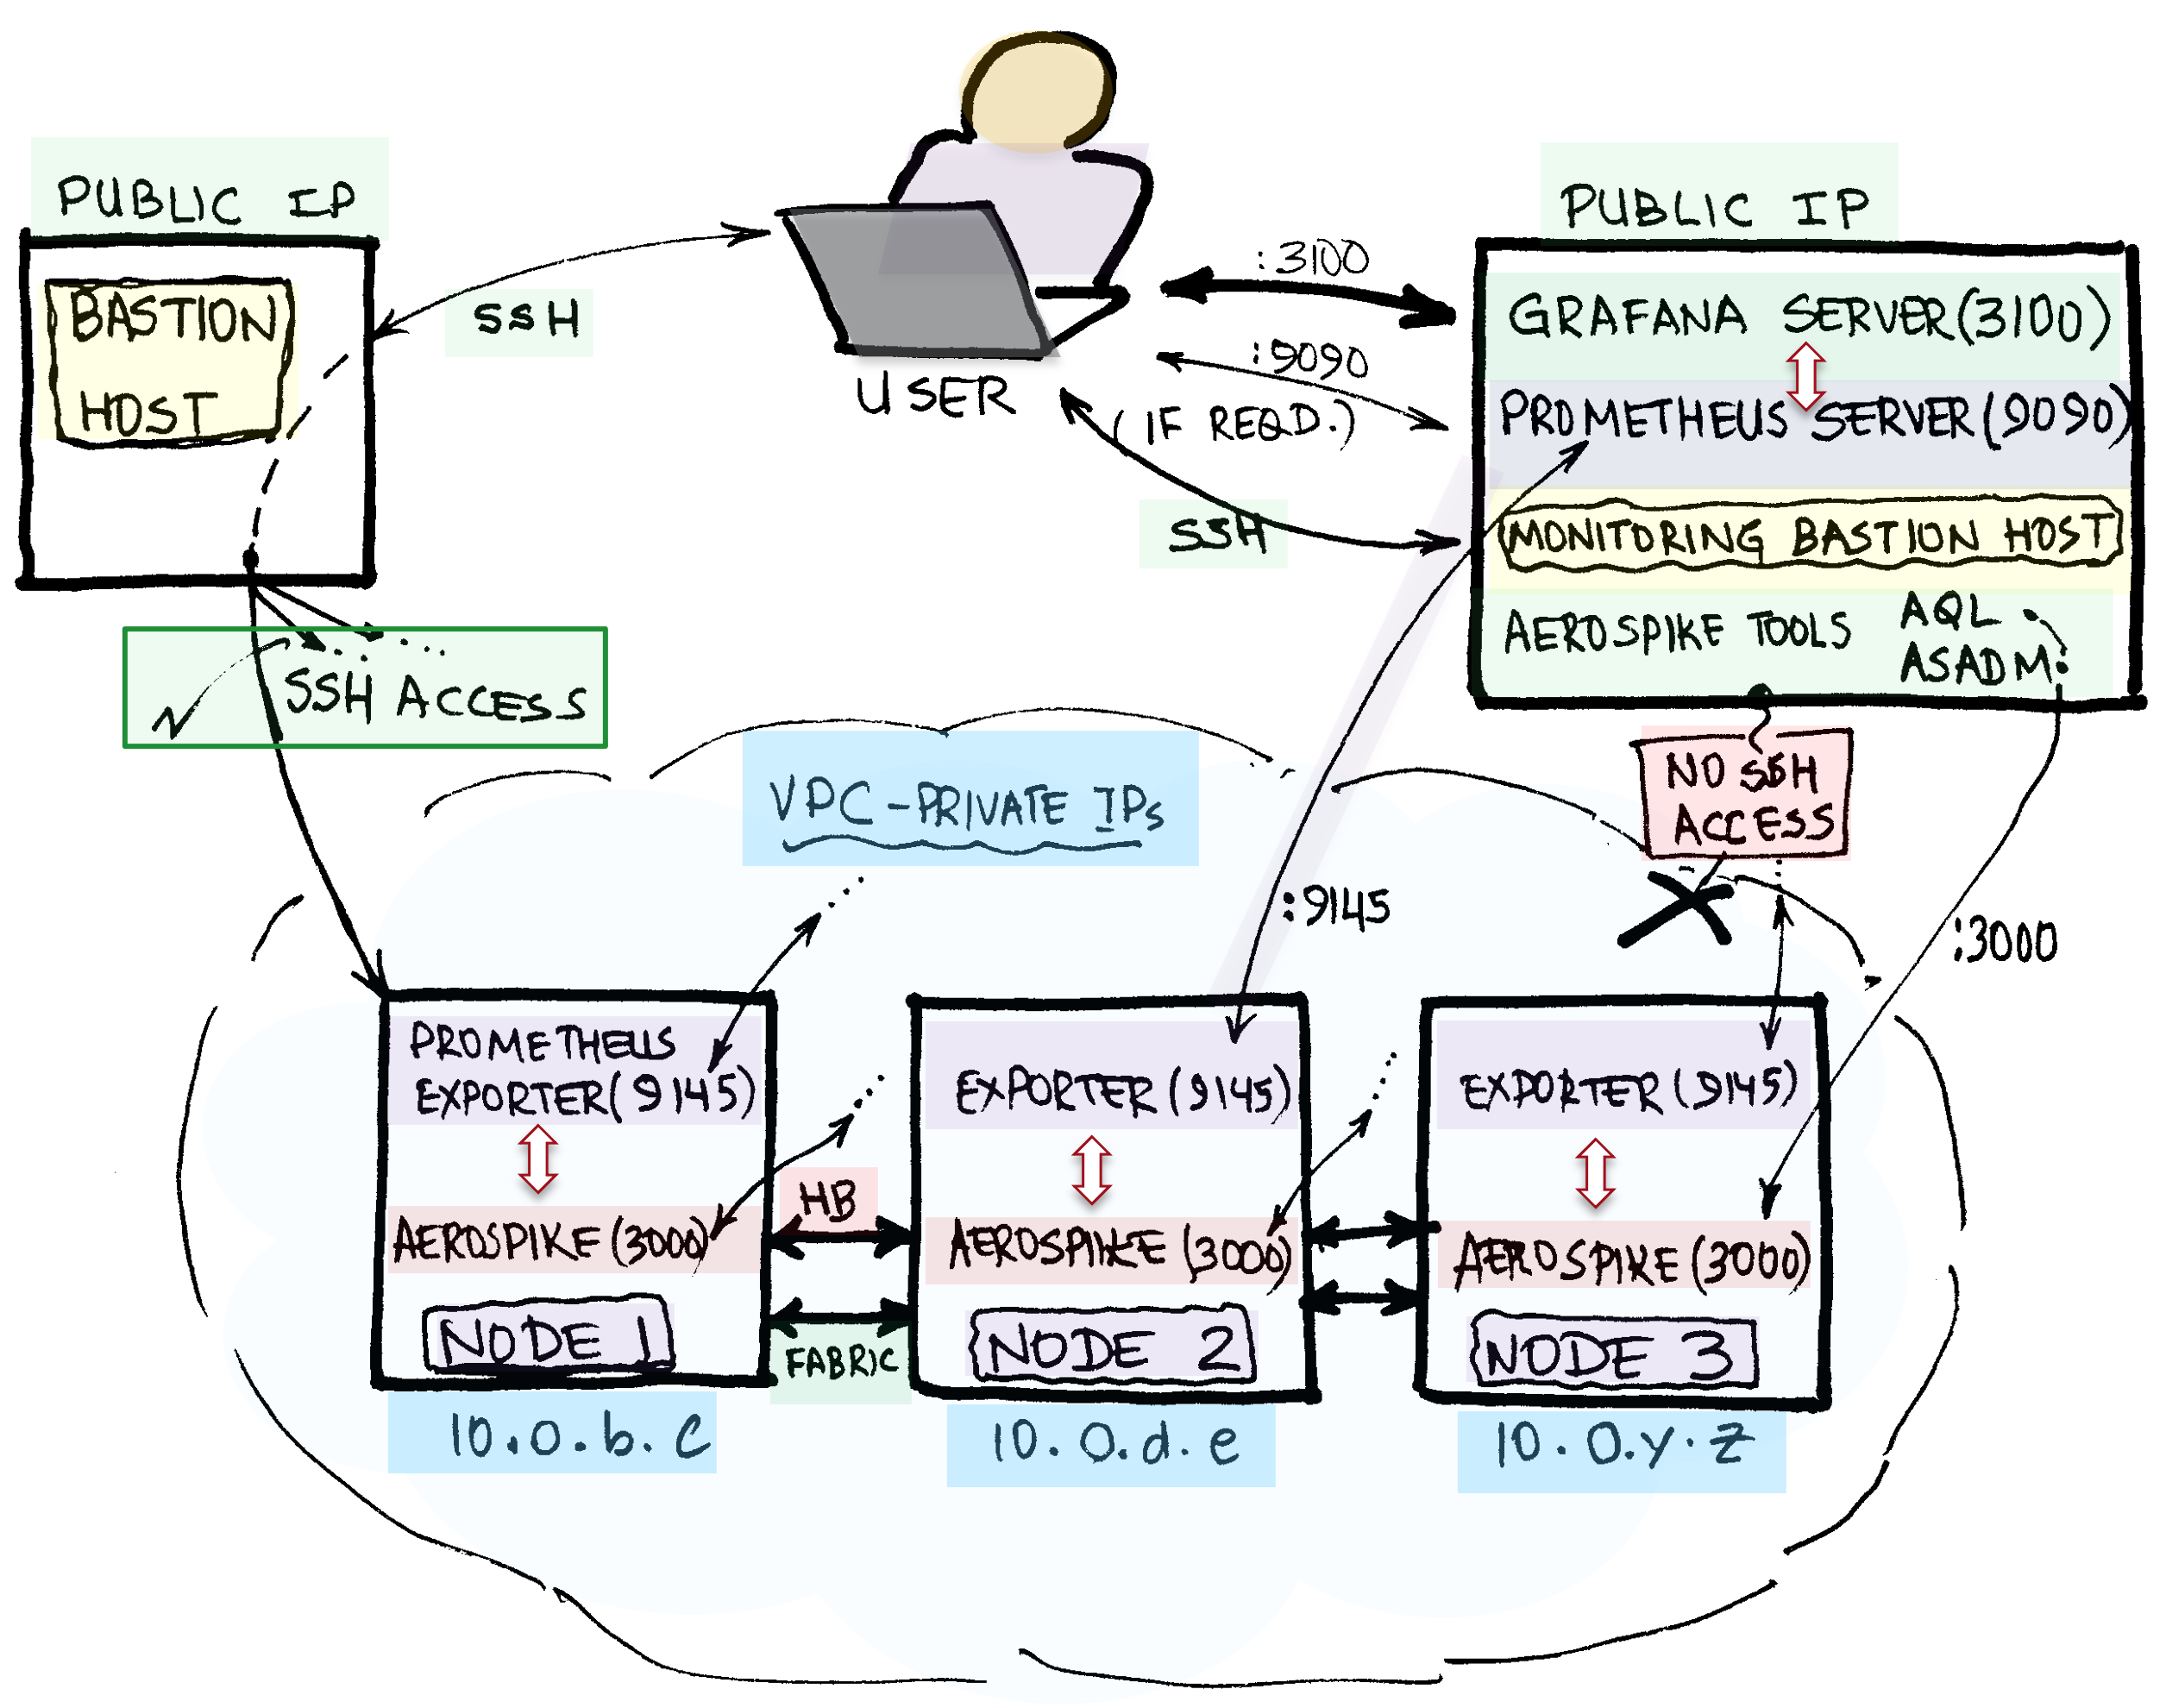 PUBLIC IP
BASTION
HOST
SSH
USER
:3100
:9090
(IF REQD.)
SSH
PUBLIC IP
GRAFANA SERVER(3100)
PROMETHEUS SERVER(9090)
MONITORING BASTION HOST
AEROSPIKE TOOLS
AQL
ASADM
SSH ACCESS
VPC-PRIVATE IPs
NO SSH
ACCESS
:9145
:3000
PROMETHEUS
EXPORTER(9145)
AEROSPIKE(3000)
NODE 1
10.0.b.c
HB
FABRIC
EXPORTER(9145)
AEROSPIKE(3000)
NODE 2
10.0.d.e
EXPORTER(9145)
AEROSPIKE(3000)
NODE 3
10.0.y.z